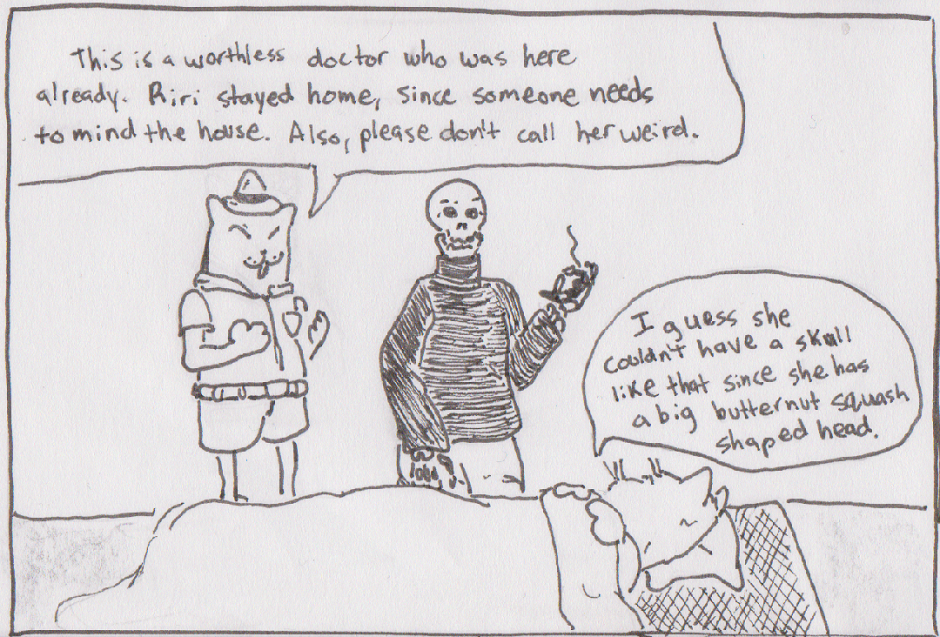 This is a worthless doctor who was here
already. Riri stayed home, since someone needs
to mind the house. Also, please don't call her weird.
I guess she
couldn't have a skull
like that since she has
a big butternut squash
shaped head.